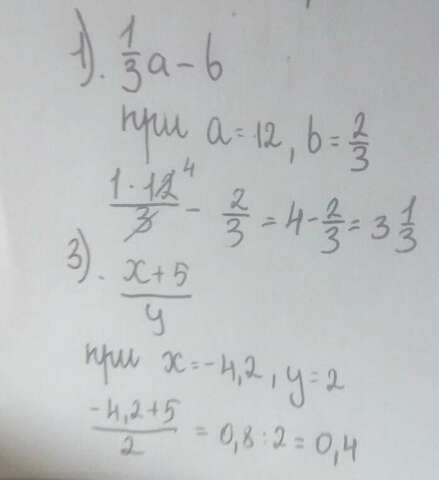 1). 1/3 a - b
при a = 12, b = 2/3
1 · 12 4 / 3 - 2/3 = 4 - 2/3 = 3 1/3
3). x + 5 / y
при x = -4,2, y = 2
-4,2 + 5 / 2 = 0,8 : 2 = 0,4